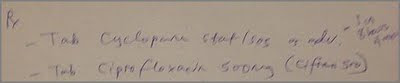 Rx
- Tab Cyclopam stat/sos
- Tab Ciprofloxacin 500mg (Cifran 500)